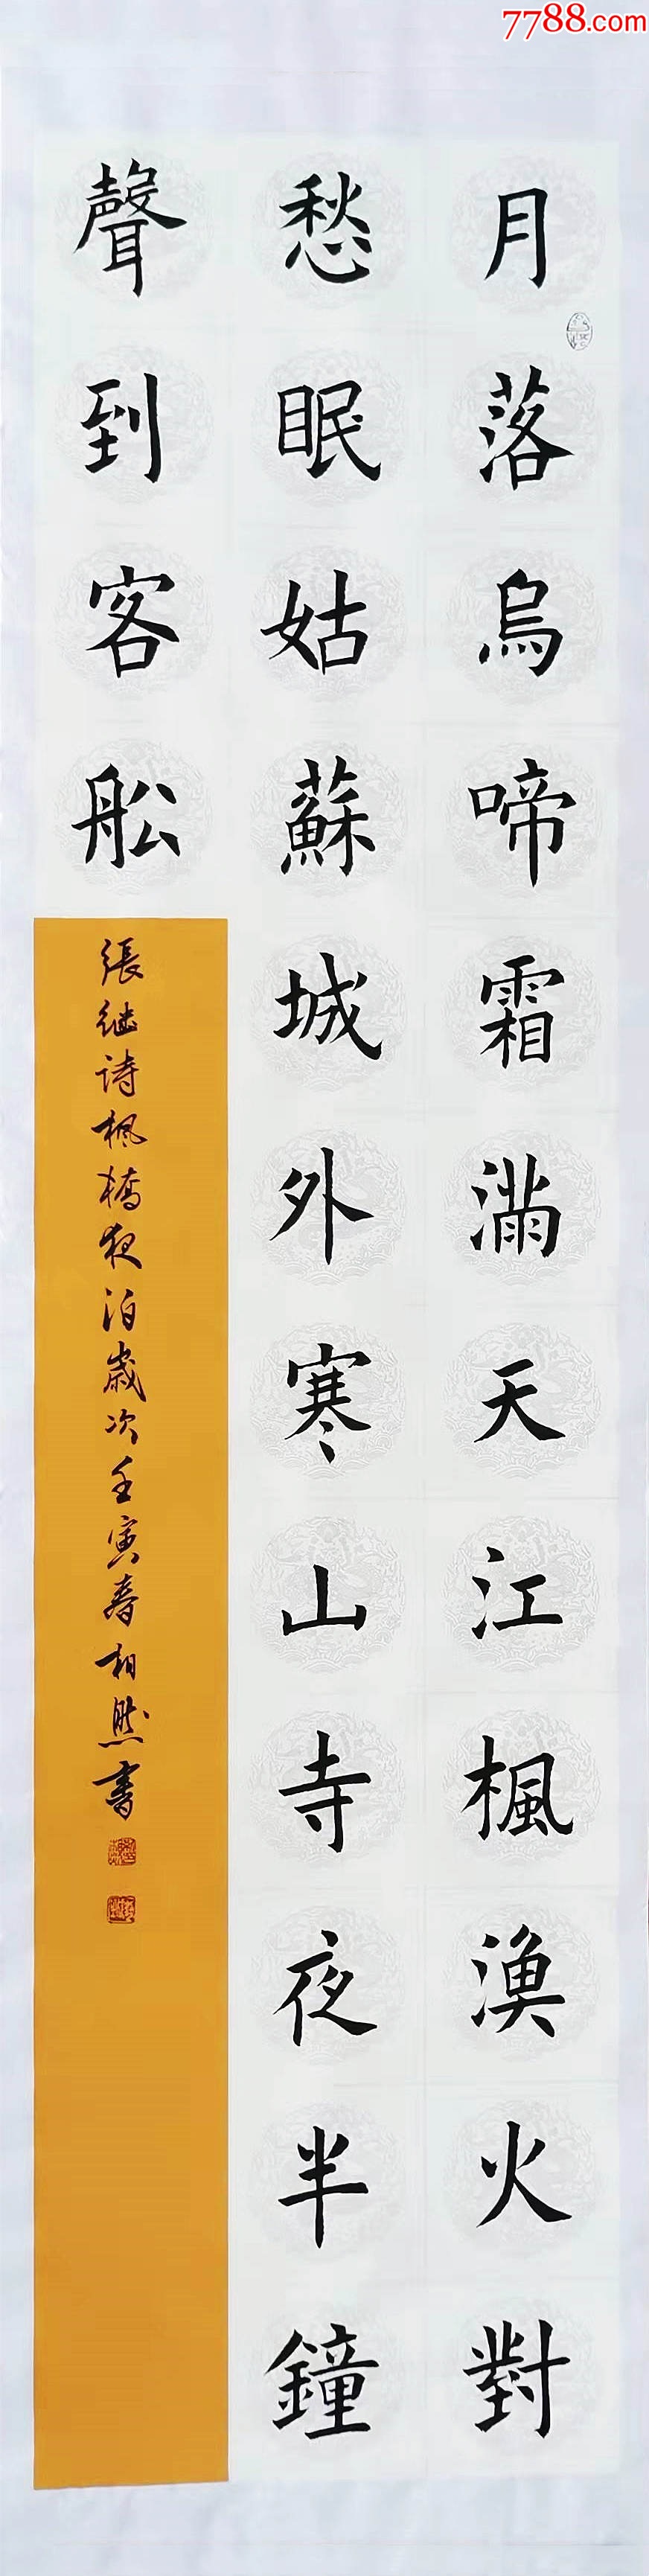 7788.com
月落烏啼霜滿天江楓漁火對
愁眠姑蘇城外寒山寺夜半鐘
聲到客船
張继诗楓橋夜泊歲次壬寅春相然書